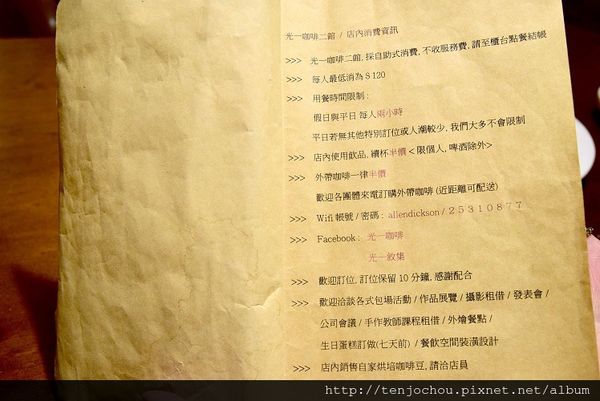 光一咖啡二館 / 店內消費資訊
>>> 光一咖啡二館, 採自助式消費, 不收服務費, 請至櫃台點餐結帳
>>> 每人最低消為 $ 120
>>> 用餐時間限制 :
假日與平日 每人兩小時
平日若無其他特別訂位或人潮較少, 我們大多不會限制
>>> 店內使用飲品, 續杯半價 < 限個人, 啤酒除外>
>>> 外帶咖啡一律半價
歡迎各團體來電訂購外帶咖啡 (近距離可配送)
>>> Wifi 帳號 / 密碼 : allendickson / 2 5 3 1 0 8 7 7
>>> Facebook : 光一咖啡
光一敘集
>>> 歡迎訂位, 訂位保留 10 分鐘, 感謝配合
>>> 歡迎洽談各式包場活動 / 作品展覽 / 攝影租借 / 發表會 /
公司會議 / 手作教師課程租借 / 外燴餐點 /
生日蛋糕訂做(七天前) / 餐飲空間裝潢設計
>>> 店內銷售自家烘培咖啡豆, 請洽店員
http://tenjochou.pixnet.net/album